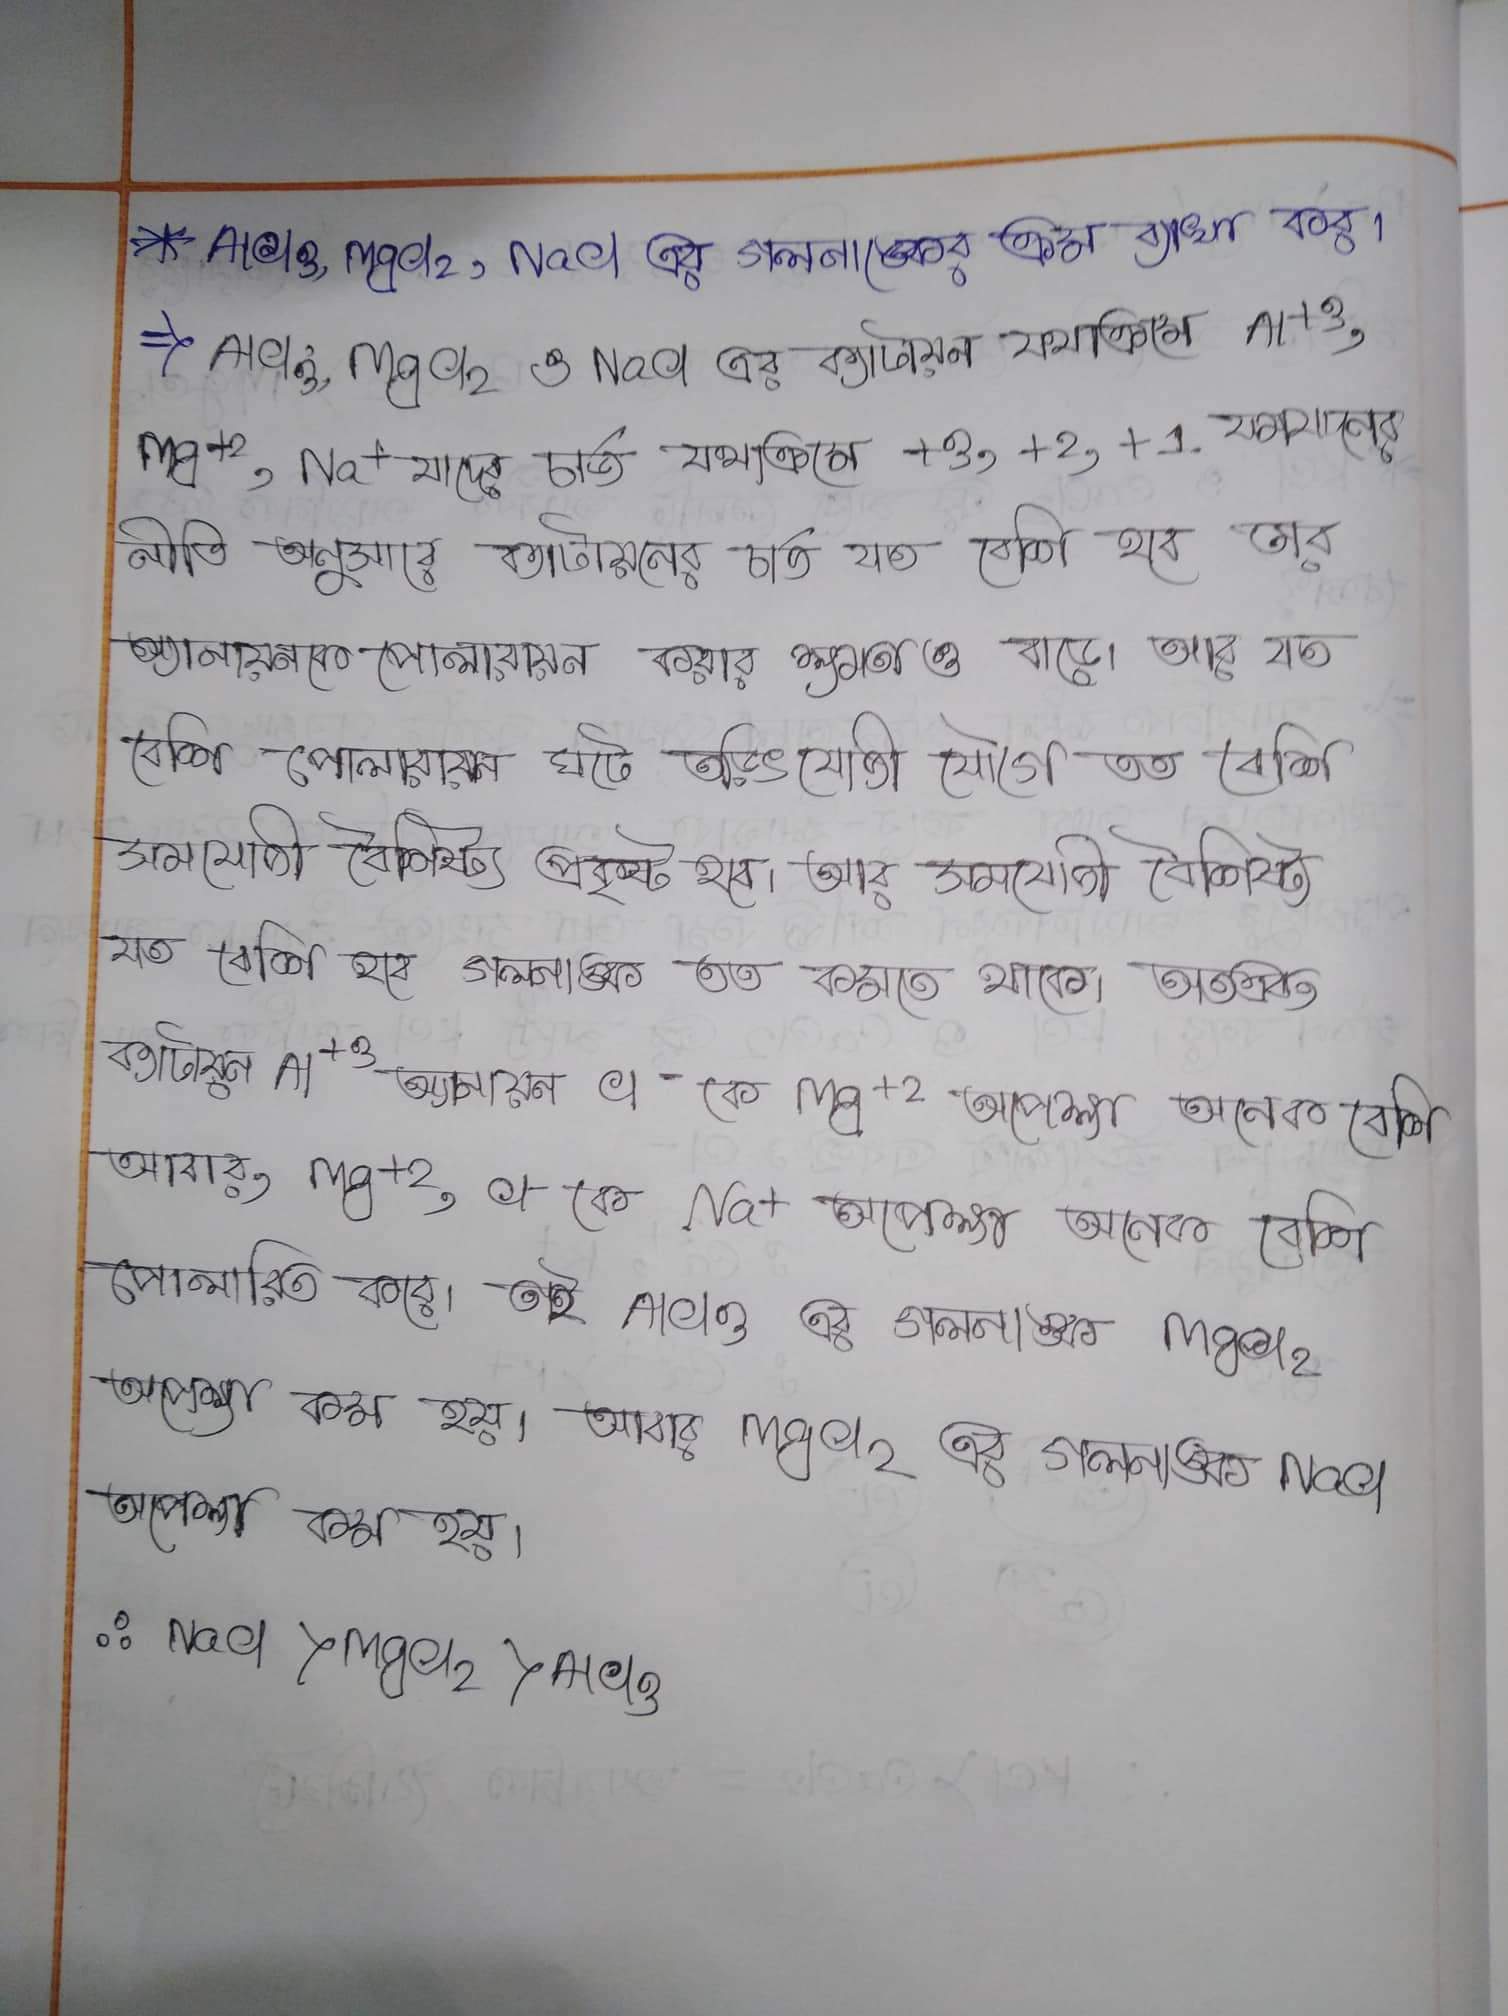 * AlCl3, MgCl2, NaCl এর গলনাঙ্কের ক্রম ব্যাখ্যা কর।
⇒ AlCl3, MgCl2 ও NaCl এর ক্যাটায়ন যথাক্রমে Al+3,
Mg+2, Na+ যাদের চার্জ যথাক্রমে +3, +2, +1. ফাযানের
নীতি অনুসারে ক্যাটায়নের চার্জ যত বেশি হবে তার
অ্যানায়নকে পোলারায়ন করার ক্ষমতাও বাড়ে। আর যত
বেশি পোলারায়ন ঘটে তড়িৎযোজী যৌগে তত বেশি
সমযোজী বৈশিষ্ট্য প্রকৃষ্ট হবে। আর সমযোজী বৈশিষ্ট্য
যত বেশি হবে গলনাঙ্ক তত কমতে থাকে। অতএব
ক্যাটায়ন Al+3 অ্যানায়ন Cl- কে Mg+2 অপেক্ষা অনেক বেশি
আবার, Mg+2, Cl- কে Na+ অপেক্ষা অনেক বেশি
পোলারিত করে। তাই AlCl3 এর গলনাঙ্ক MgCl2
অপেক্ষা কম হয়। আবার MgCl2 এর গলনাঙ্ক NaCl
অপেক্ষা কম হয়।
∴ NaCl > MgCl2 > AlCl3